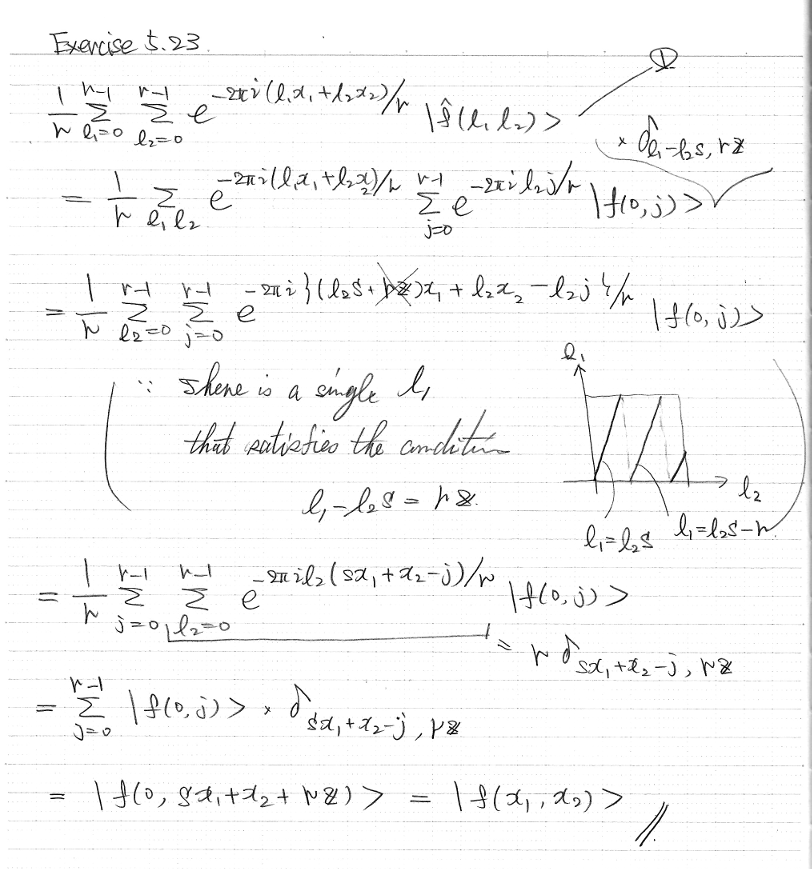 Exercise 5.23.
①
1/r Σ_{l₁=0}^{r-1} Σ_{l₂=0}^{r-1} e^{-2πi(l₁x₁+l₂x₂)/r} |f̂(l₁ l₂)>
× δ_{l₁-l₂s, rℤ}
= 1/r Σ_{l₁ l₂} e^{-2πi(l₁x₁+l₂x₂)/r} Σ_{j=0}^{r-1} e^{-2πi l₂j/r} |f(0,j)>
= 1/r Σ_{l₂=0}^{r-1} Σ_{j=0}^{r-1} e^{-2πi{(l₂s+rℤ)x₁+l₂x₂-l₂j}/r} |f(0,j)>
∵ There is a single l₁
that satisfies the condition
l₁-l₂s = rℤ.
l₁
l₂
l₁=l₂s
l₁=l₂s-r
= 1/r Σ_{j=0}^{r-1} Σ_{l₂=0}^{r-1} e^{-2πi l₂(sx₁+x₂-j)/r} |f(0,j)>
= r δ_{sx₁+x₂-j, rℤ}
= Σ_{j=0}^{r-1} |f(0,j)> × δ_{sx₁+x₂-j, rℤ}
= |f(0, sx₁+x₂+rℤ)> = |f(x₁,x₂)> //